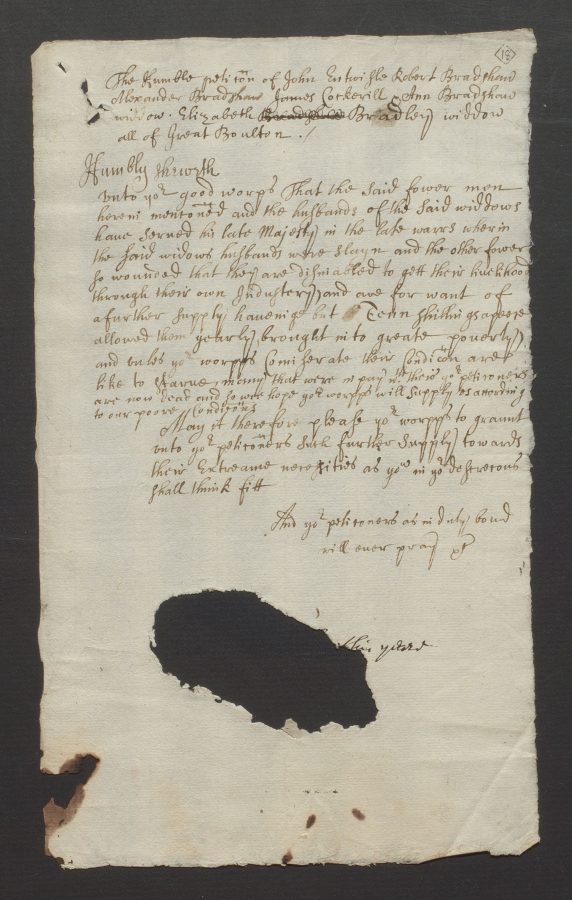 18
The Humble peticōn of John Entwisle Robert Bradshaw
Alexander Bradshaw James Cockerill Ann Bradshaw
widdow. Elizabeth Bradley widdow
all of Great Boulton ./
Humbly sheweth
Unto yor good worps That the said fower men
herein mentōned and the husbands of the said widdows
haue serued his late Majesty in the late warrs wherin
the said widows husbands were slayn and the other fower
so wounded that they are dismabled to gett their liuelihood
through their own Industery and are for want of
a further supply haueinge but Tenn shillings apeece
allowed them yearly brought into greate pouerty
and unles yor worpps Comiserate their Condicōn are
like to starue, many that were in pay wth their yor peticoners
are now dead and so wee hope yor worpps will supply us according
to our poore Condicōns
May it therefore please yor worpps to graunt
unto yor peticōners such further supply towards
their Extreame necesities as yow in yor descretcons
shall think fitt
And yor peticoners as in duty bound
will euer pray &c
this yeare